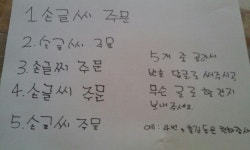 1 손글씨 주문
2. 손글씨 주문
3. 손글씨 주문
4. 손글씨 주문
5. 손글씨 주문
5개 중 골라서
번호 댓글로 써주시고
무슨 글로 할건지
보내주세요.
예: 4번